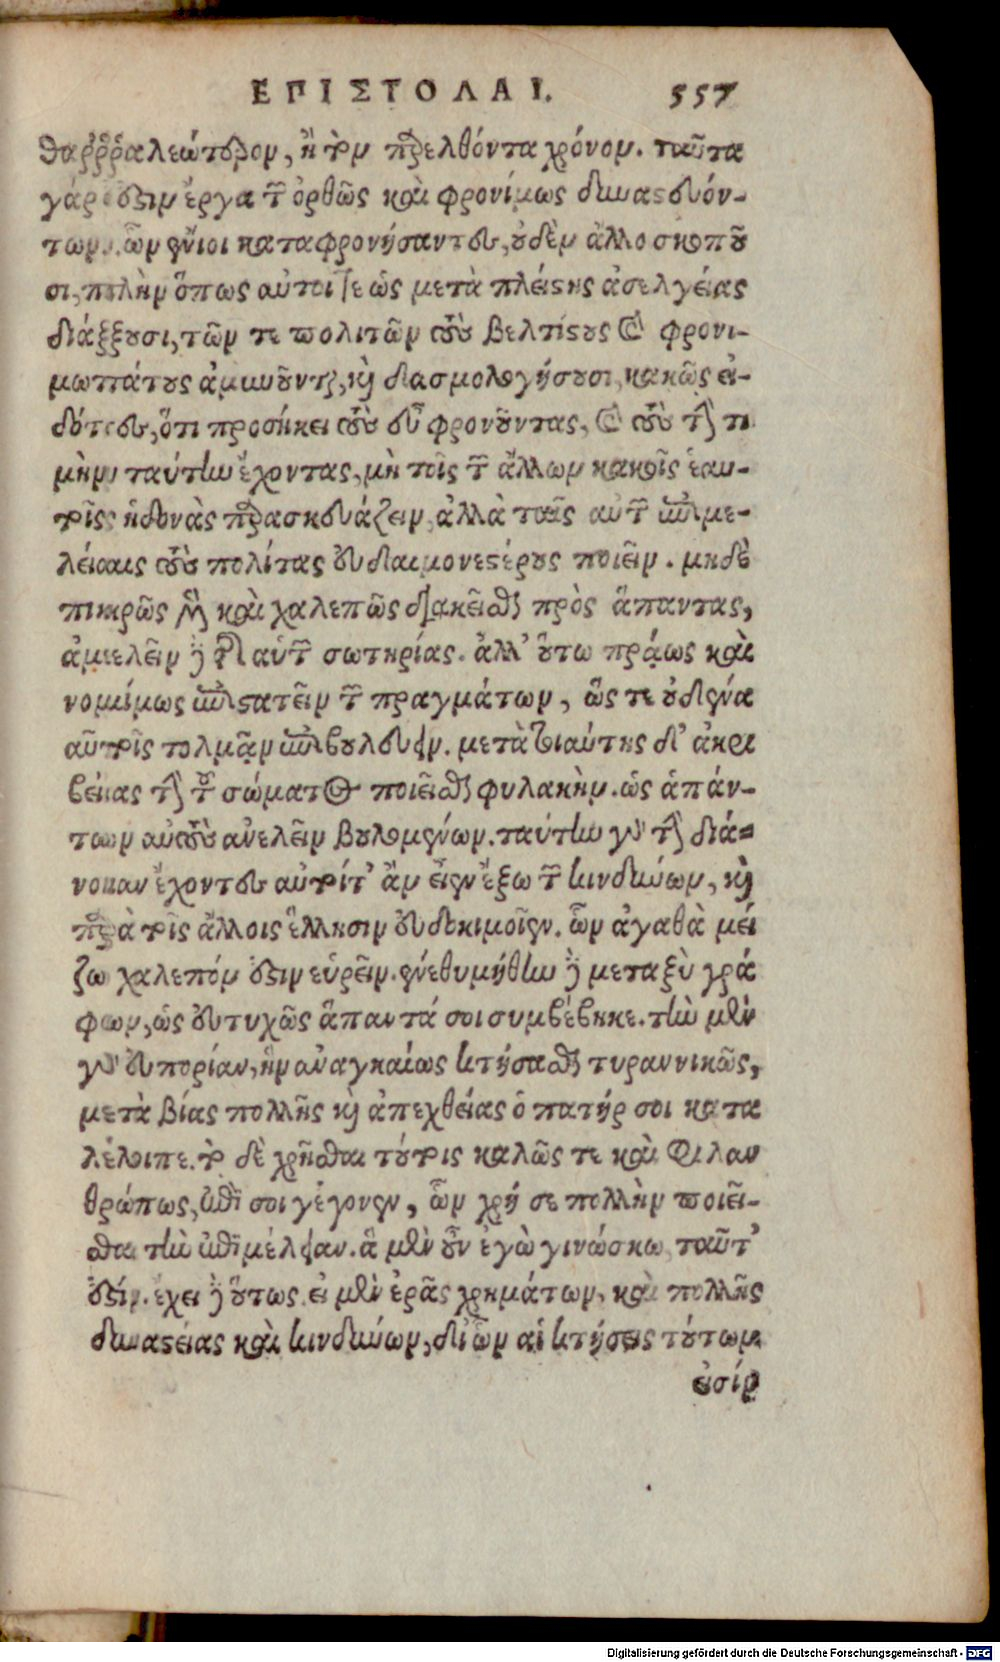 ΕΠΙΣΤΟΛΑΙ. 557
θαῤῥαλεώτερον, ἢ τὸν παρελθόντα χρόνον. ταῦτα
γάρ ἐστιν ἔργα τῶν ὀρθῶς καὶ φρονίμως δυναστευόν-
των. ὧν ἔνιοι καταφρονήσαντες, οὐδὲν ἄλλο σκοποῦ
σι, πλὴν ὅπως αὐτοί τε ὡς μετὰ πλείστης ἀσελγείας
διάξουσι, τῶν τε πολιτῶν τοὺς βελτίστους καὶ φρονι-
μωτάτους ἀμυνοῦνται, καὶ δασμολογήσουσι, κακῶς εἰ-
δότες, ὅτι προσήκει τοὺς εὖ φρονοῦντας, καὶ τοὺς τὴν τι
μὴν ταύτην ἔχοντας, μὴ τοῖς τῶν ἄλλων κακοῖς ἑαυ-
τοῖς ἡδονὰς παρασκευάζειν, ἀλλὰ ταῖς αὐτῶν ἐπιμε-
λείαις τοὺς πολίτας εὐδαιμονεστέρους ποιεῖν. μηδὲ
πικρῶς μὲν καὶ χαλεπῶς διακεῖσθαι πρὸς ἅπαντας,
ἀμελεῖν δὲ τῆς αὑτῶν σωτηρίας. ἀλλ' οὕτω πράως καὶ
νομίμως ἐπιστατεῖν τῶν πραγμάτων, ὥς τε οὐδένα
αὐτοῖς τολμᾶν ἐπιβουλεύειν. μετὰ τοιαύτης δ' ἀκρι
βείας τὴν τοῦ σώματος ποιεῖσθαι φυλακὴν. ὡς ἁπάν-
των αὐτοὺς ἀνελεῖν βουλομένων. ταύτην γὰρ τὴν διά-
νοιαν ἔχοντες αὐτοί τ' ἂν εἶεν ἔξω τῶν κινδύνων, καὶ
παρὰ τοῖς ἄλλοις ἕλλησιν εὐδοκιμοῖεν. ὧν ἀγαθὰ μεί
ζω χαλεπόν ἐστιν εὑρεῖν. ἐνεθυμήθην δὲ μεταξὺ γρά
φων, ὡς εὐτυχῶς ἅπαντά σοι συμβέβηκε. τὴν μὲν
γὰρ εὐπορίαν, ἣν ἀναγκαίως κτήσασθαι τυραννικῶς,
μετὰ βίας πολλῆς καὶ ἀπεχθείας ὁ πατήρ σοι κατα
λέλοιπε. τὸ δὲ χρῆσθαι τούτοις καλῶς τε καὶ φιλαν
θρώπως, ἐπὶ σοὶ γέγονεν, ὧν χρή σε πολλὴν ποιεῖ-
σθαι τὴν ἐπιμέλειαν. ἃ μὲν οὖν ἐγὼ γινώσκω, ταῦτ'
ἐστίν. ἔχει δὲ οὕτως. εἰ μὲν ἐρᾷς χρημάτων, καὶ πολλῆς
δυναστείας καὶ κινδύνων, δι' ὧν αἱ κτήσεις τούτων
εἰσίν
Digitalisierung gefördert durch die Deutsche Forschungsgemeinschaft - DFG